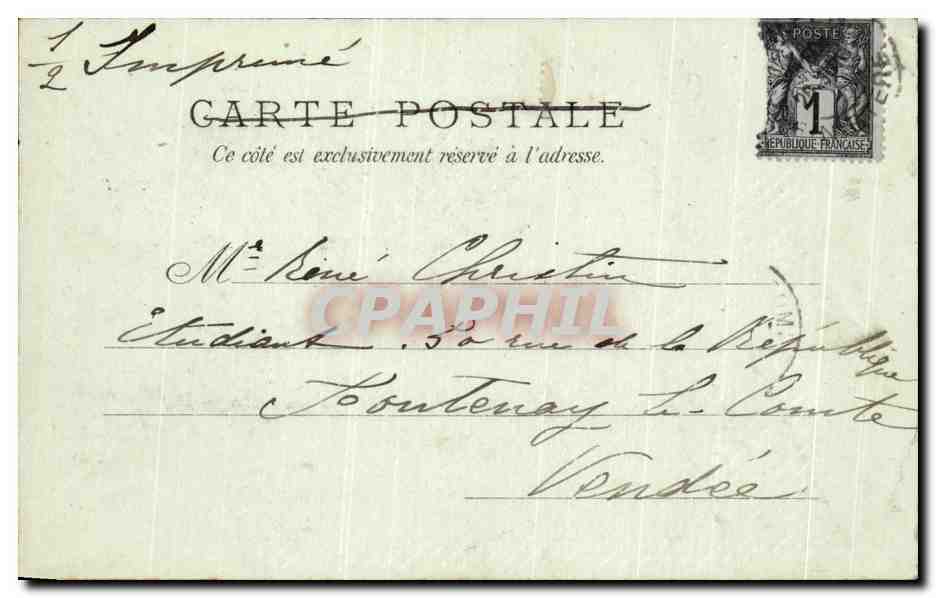 ½ Imprimé
POSTE
1
REPUBLIQUE FRANÇAISE
CARTE POSTALE
Ce côté est exclusivement réservé à l'adresse.
Mr René Christin
CPAPHIL
Etudiant . 50 rue de la République
Fontenay Le-Comte
Vendée